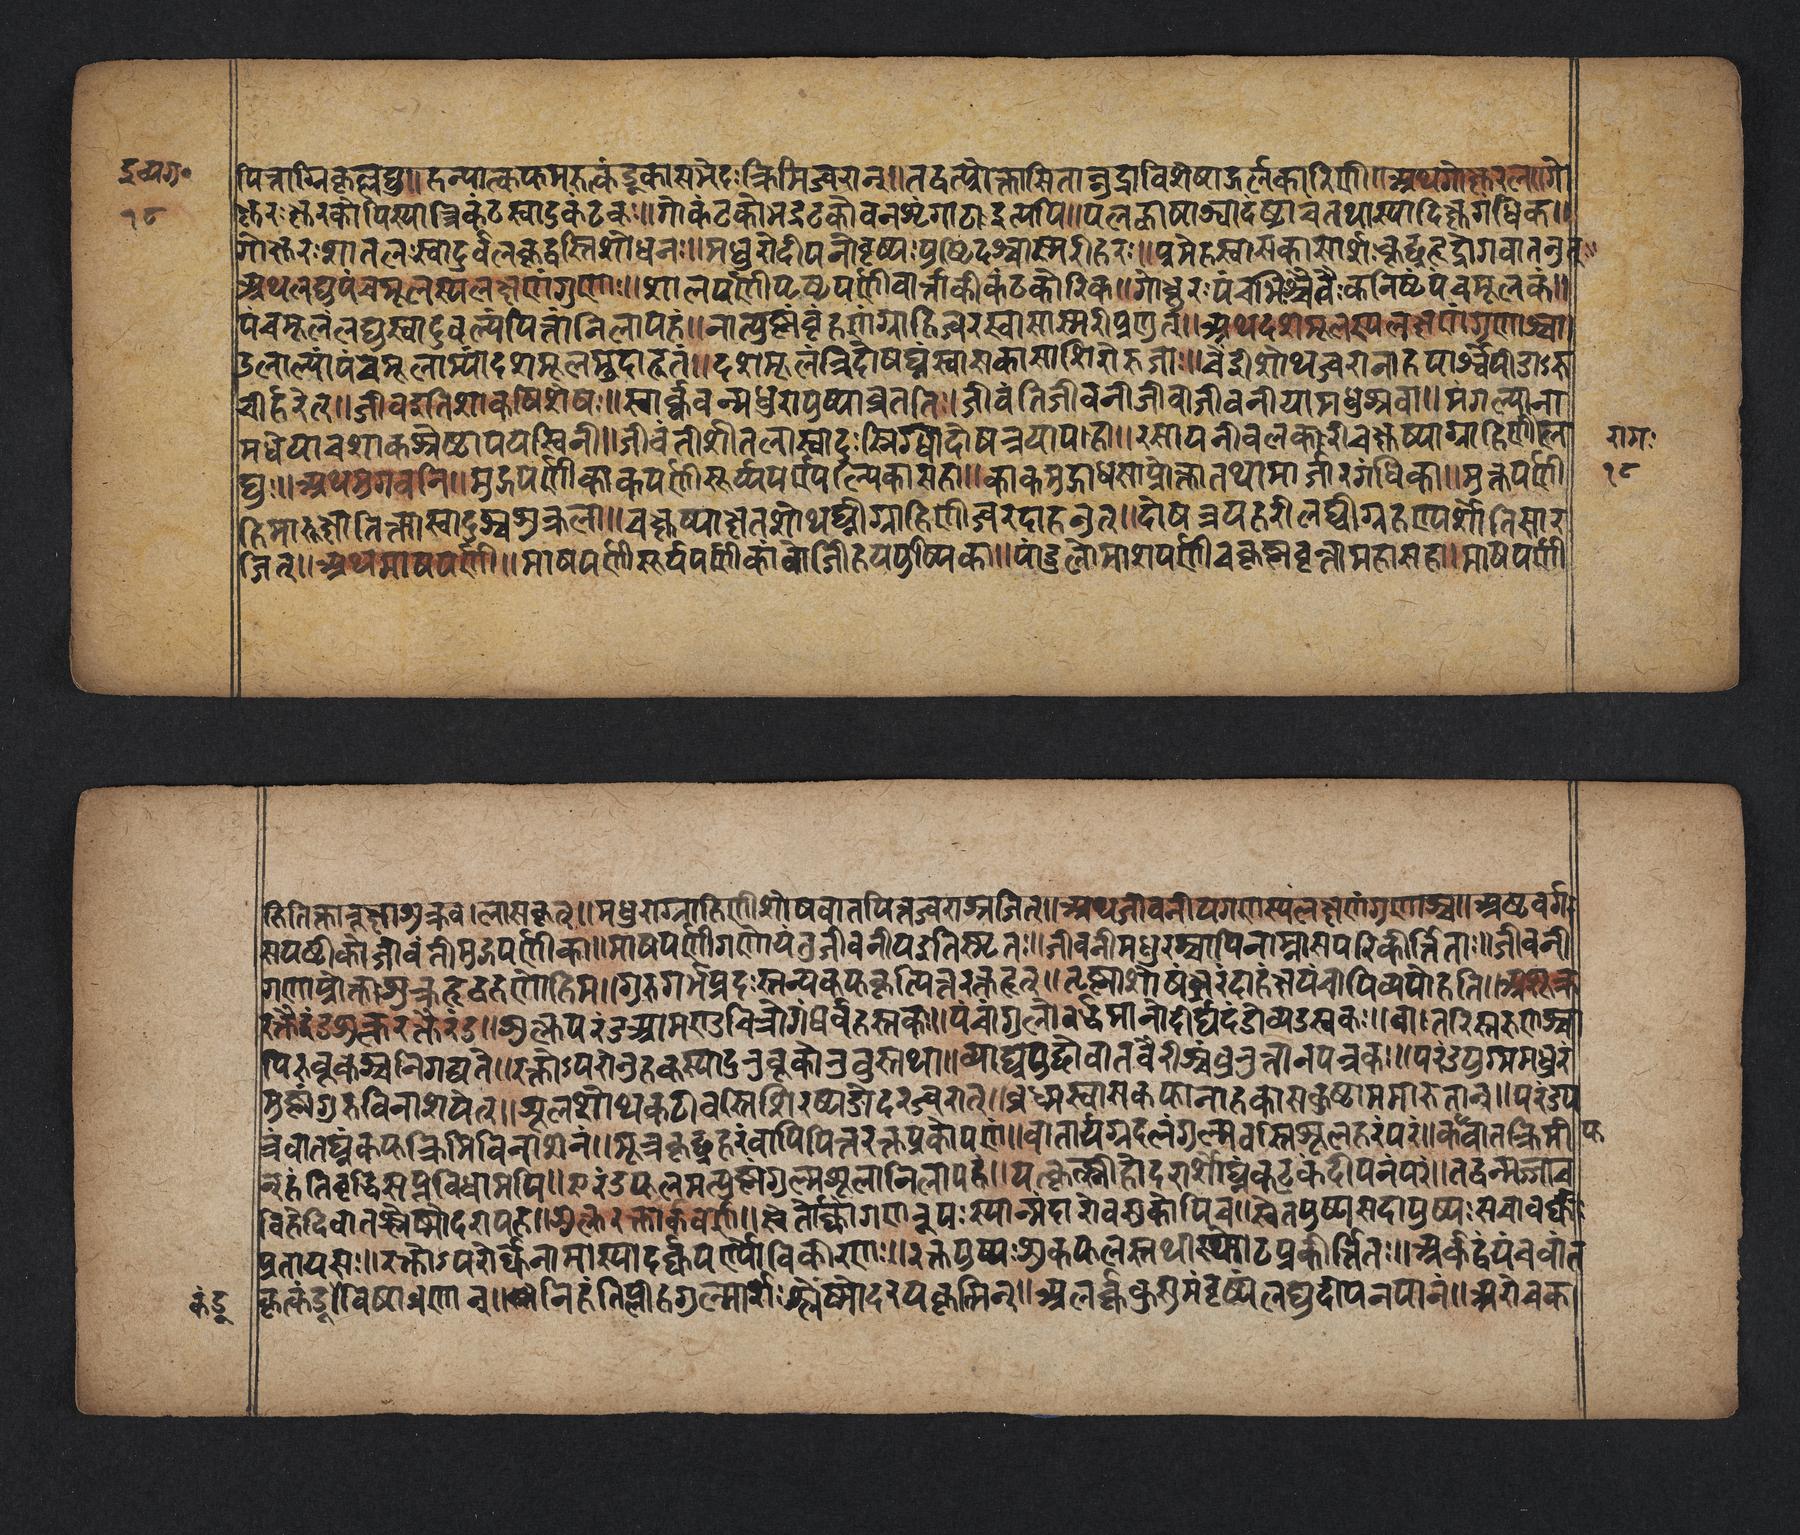 द्रव्यगु॰
१८
पित्ताग्निकृल्लघु॥हन्यात्कफमरुत्कंडूकासमेदःक्रिमिज्वरान्॥तद्वत्प्रोक्तासिताक्षुद्राविशेषाद्गर्भकारिणी॥अथगोक्षुरःलागो
क्षुरःक्षुरकोपिस्यात्त्रिकंटस्वादुकंटकः॥गोकंटकोभद्रटकोवनशृंगाटाइत्यपि॥पलकषाश्वदंष्ट्राचतथास्यादिक्षुगंधिका॥
गोक्षुरःशीतलःस्वादुर्वलकृद्वस्तिशोधनः॥मधुरोदीपनोवृष्यःपुष्टिदश्चाश्मरीहरः॥प्रमेहश्वासकासार्शःकृछ्रहृद्रोगवातनुत्॥
अथलघुपंचमूलस्यलक्षणंगुणाः॥शालपर्णीपृष्टपर्णीवार्त्ताकीकंटकारिका॥गोक्षुरःपंचभिश्चैतैःकनिष्टंपंचमूलकं॥
पंचमूलंलघुस्वादुवल्यंपित्तानिलापहं॥नात्युष्णंवृंहणंग्राहिज्वरश्वासाश्मरीप्रणुत्॥अथदशमूलस्यलक्षणंगुणाश्च॥
उभाभ्यांपंचमूलाभ्यांदशमूलमुदाहृतं॥दशमूलंत्रिदोषघ्नंश्वासकासशिरोरुजाः॥तंद्राशोथज्वरानाहपार्श्वपीडाऽरु
चीर्हरेत्॥जीवइतिशाकविशेषः॥स्वार्कवन्मधुरापुष्पाव्रततिः॥जीवंतिजीवनीजीवाजीवनीयामधुश्रवा॥मंगल्याना
मधेयाचशाकश्रेष्ठापयस्विनी॥जीवंतीशीतलास्वादुःस्निग्धादोषत्रयापहा॥रसायनीवलकरीचक्षुष्याग्राहिणीला
राम
१८
घुः॥अथमुगवनि॥मुद्गपर्णीकाकपर्णीसूर्य्यपर्ण्यल्पिकासहा॥काकमुद्गाधसाप्रोक्तातथामार्जारगंधिका॥मुद्गपर्णी
हिमारूक्षातिक्तास्वादुश्चशुक्रला॥चक्षुष्याक्षतशोथघ्नीग्राहिणीज्वरदाहनुत्॥दोषत्रयहरीलघ्वीग्रहण्यर्शोतिसार
जित्॥अथमाषपर्णी॥माषपर्णीसूर्यपर्णीकांवोजीहयपुच्छिका॥पांडुलोमाशपर्णीचकृष्णवृन्तामहासहा॥माषपर्णी
हिमातिक्तारूक्षाशुक्रवलासकृत्॥मधुराग्राहिणीशोषवातपित्तज्वरास्रजित्॥अथजीवनीयगणस्यलक्षणंगुणाश्च॥अष्टवर्गः
सयष्टीकोजीवंतीमुद्गपर्णीका॥माषपर्णीगणोयंतुजीवनीयइतिस्मृतः॥जीवनीमधुरश्चापिनाम्नासपरिकीर्त्तिता॥जीवनी
गणःप्रोक्तःशुक्रकृद्वृहणोहिमः॥गुरुगर्भप्रदःस्तन्यकफकृत्पित्तरक्तहृत्॥तृष्णांशोषंज्वरंदाहंक्षयंचापिव्यपोहति॥अथशुक्ल
रक्तैरंडशुक्लरक्तैरंड॥शुक्लएरंडआमण्डचित्रोगंधर्वहस्तकः॥पंचांगुलोवर्द्धमानोदीर्घदंडोव्यडम्वकः॥वातारिस्तरुणश्चा
पिरुवूकश्चनिगद्यते॥रक्तोऽपरोरुवूकस्यादुरुवूकोरुवुस्तथा॥व्याघ्रपुच्छोवातवैरीचंचुरुत्तानपत्रकः॥एरंडयुग्ममधुरं
मुष्णंगुरुविनाशयेत्॥शूलशोथकटीवस्तिशिरःपीडोदरज्वरान्॥व्रध्मश्वासकफानाहकासकुष्टाममारुतान्॥एरंडप
त्रंवातघ्नंकफक्रिमिविनाशनं॥मूत्रकृछ्रहरंचापिपित्तरक्तप्रकोपणं॥वातार्यग्रदलंगुल्मवस्तिशूलहरंपरं॥कफवातक्रिमी
फ
न्हंतिवृद्धिसप्तविधामपि॥एरंडफलमत्युष्णंगुल्मशूलानिलापहं॥यकृत्प्लीहोदरार्शोघ्नंकटुकंदीपनंपरं॥तद्वन्मज्जाच
विड्भेदीवातश्लेष्मोदरापहः॥शुक्लरक्तार्कवर्णा॥श्वेतार्को
प्रतायसः॥रक्तोऽपरोर्कनामास्यादर्कपर्णोविकीरणः॥रक्तपुष्पःशुकफलस्तथास्फोटःप्रकीर्त्तितः॥अर्कद्वयंचवात
कंडू
कृत्कंडूविषव्रणान्॥निहंतिप्लीहगुल्मार्शःश्लेष्मोदरयकृत्क्रिमीन्॥अलर्ककुसुमंवृष्यंलघुदीपनपाचनं॥अरोचक